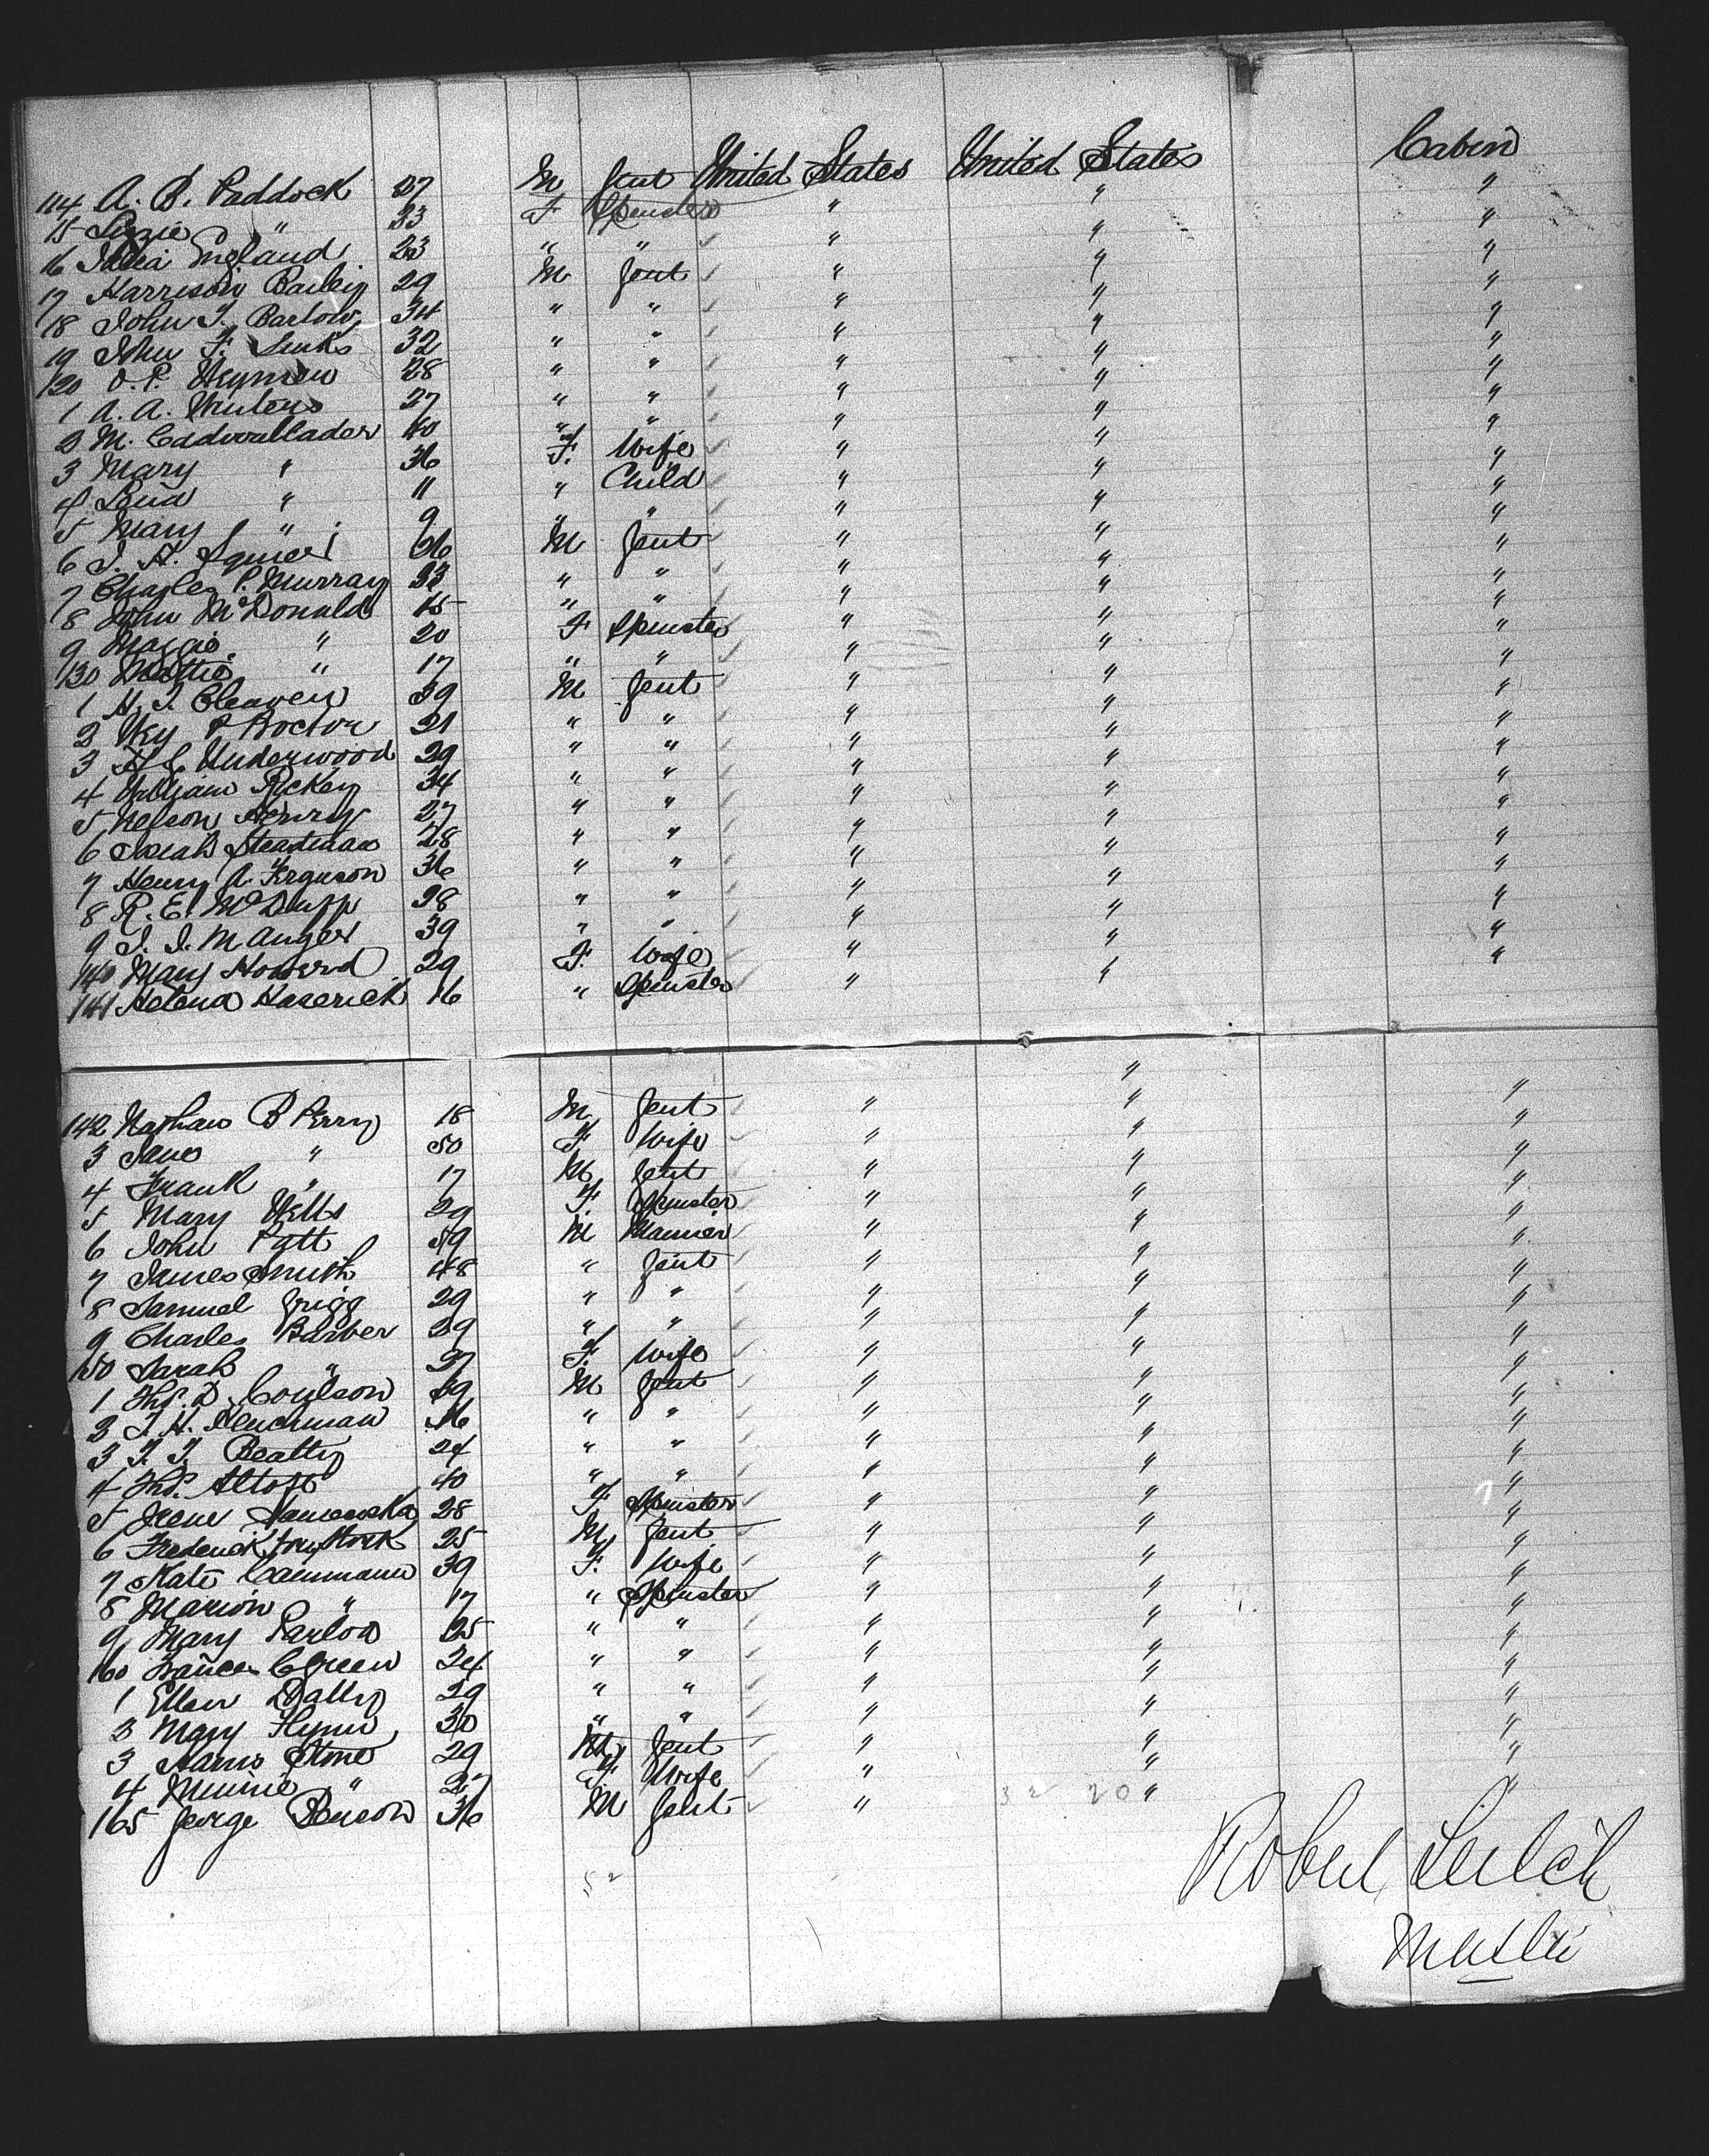 Cabin
114 A. B. Paddock 27 M Gent United States United States "
15 Lizzie " 33 F Spinster " " "
16 Julia England 23 " " " " "
17 Harrison Bailey 29 M Gent " " "
18 John T. Barlow 34 " " " " "
19 John F. 32 " " " " "
120 O. P. 28 " " " " "
1 A. A. Winters 27 " " " " "
2 M. Cadwallader 40 " " " " "
3 Mary " 36 F. Wife " " "
4 Lena " 11 " Child " " "
5 Mary " 9 " " " " "
6 J. A. Squier 66 M Gent " " "
7 Charles P. Murray 33 " " " " "
8 John McDonald 15 " " " " "
9 Maggie " 20 F Spinster " " "
130 Mattie " 17 " " " " "
1 H. T. Cleaver 39 M Gent " " "
2 Wey P Proctor 21 " " " " "
3 Underwood 29 " " " " "
4 William Rickey 34 " " " " "
5 Nelson Henry 27 " " " " "
6 Steadman 28 " " " " "
7 Henry A. Ferguson 36 " " " " "
8 R. E. McDuff 28 " " " " "
9 J. J. Manger 39 " " " " "
140 Mary Howard 29 F. Wife " " "
141 Helena Haserick 16 " Spinster " "
142 Nathan B Perry 18 M Gent " " "
3 Jane " 50 F Wife " " "
4 Frank " 17 M Gent " " "
5 Mary Wells 29 F. Spinster " " "
6 John Patt 59 M Mariner " " "
7 James Smith 48 " Gent " " "
8 Samuel Grigg 29 " " " " "
9 Charles Barber 29 " " " " "
150 Sarah " 27 F. Wife " " "
1 Ths. D. Coulson 49 M Gent " " "
2 J. H. Henchman 36 " " " " "
3 T. T. Beatty 24 " " " " "
4 Ths. Altoft 40 " " " " "
5 Irene 28 F Spinster " " "
6 Frederick 25 M Gent " " "
7 Kate Cammann 39 F. Wife " " "
8 Marion " 17 " Spinster " " "
9 Mary Parloa 35 " " " " "
160 Frances C Green 24 " " " " "
1 Ellen Dally 29 " " " " "
2 Mary Flynn 30 " " " " "
3 Stone 29 M Gent " " "
4 Minnie " 27 F. Wife " " "
165 George Benson 36 M Gent " "
32 20
52
Robert Leitch
Master